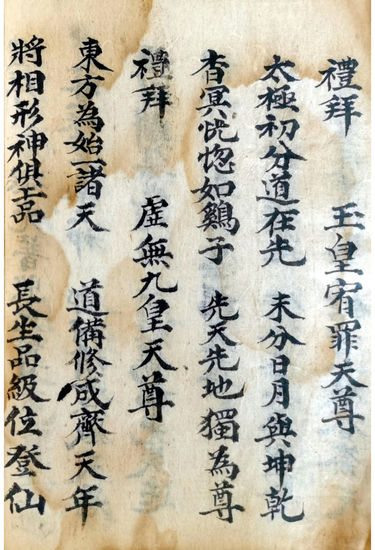 禮拜 玉皇宥罪天尊
太極初分道在先 未分日月與坤乾
杳冥恍惚如鷄子 先天先地獨為尊
禮拜 虛無九皇天尊
東方為始一諸天 道備修成齊天年
將相形神俱品 長生品級位登仙